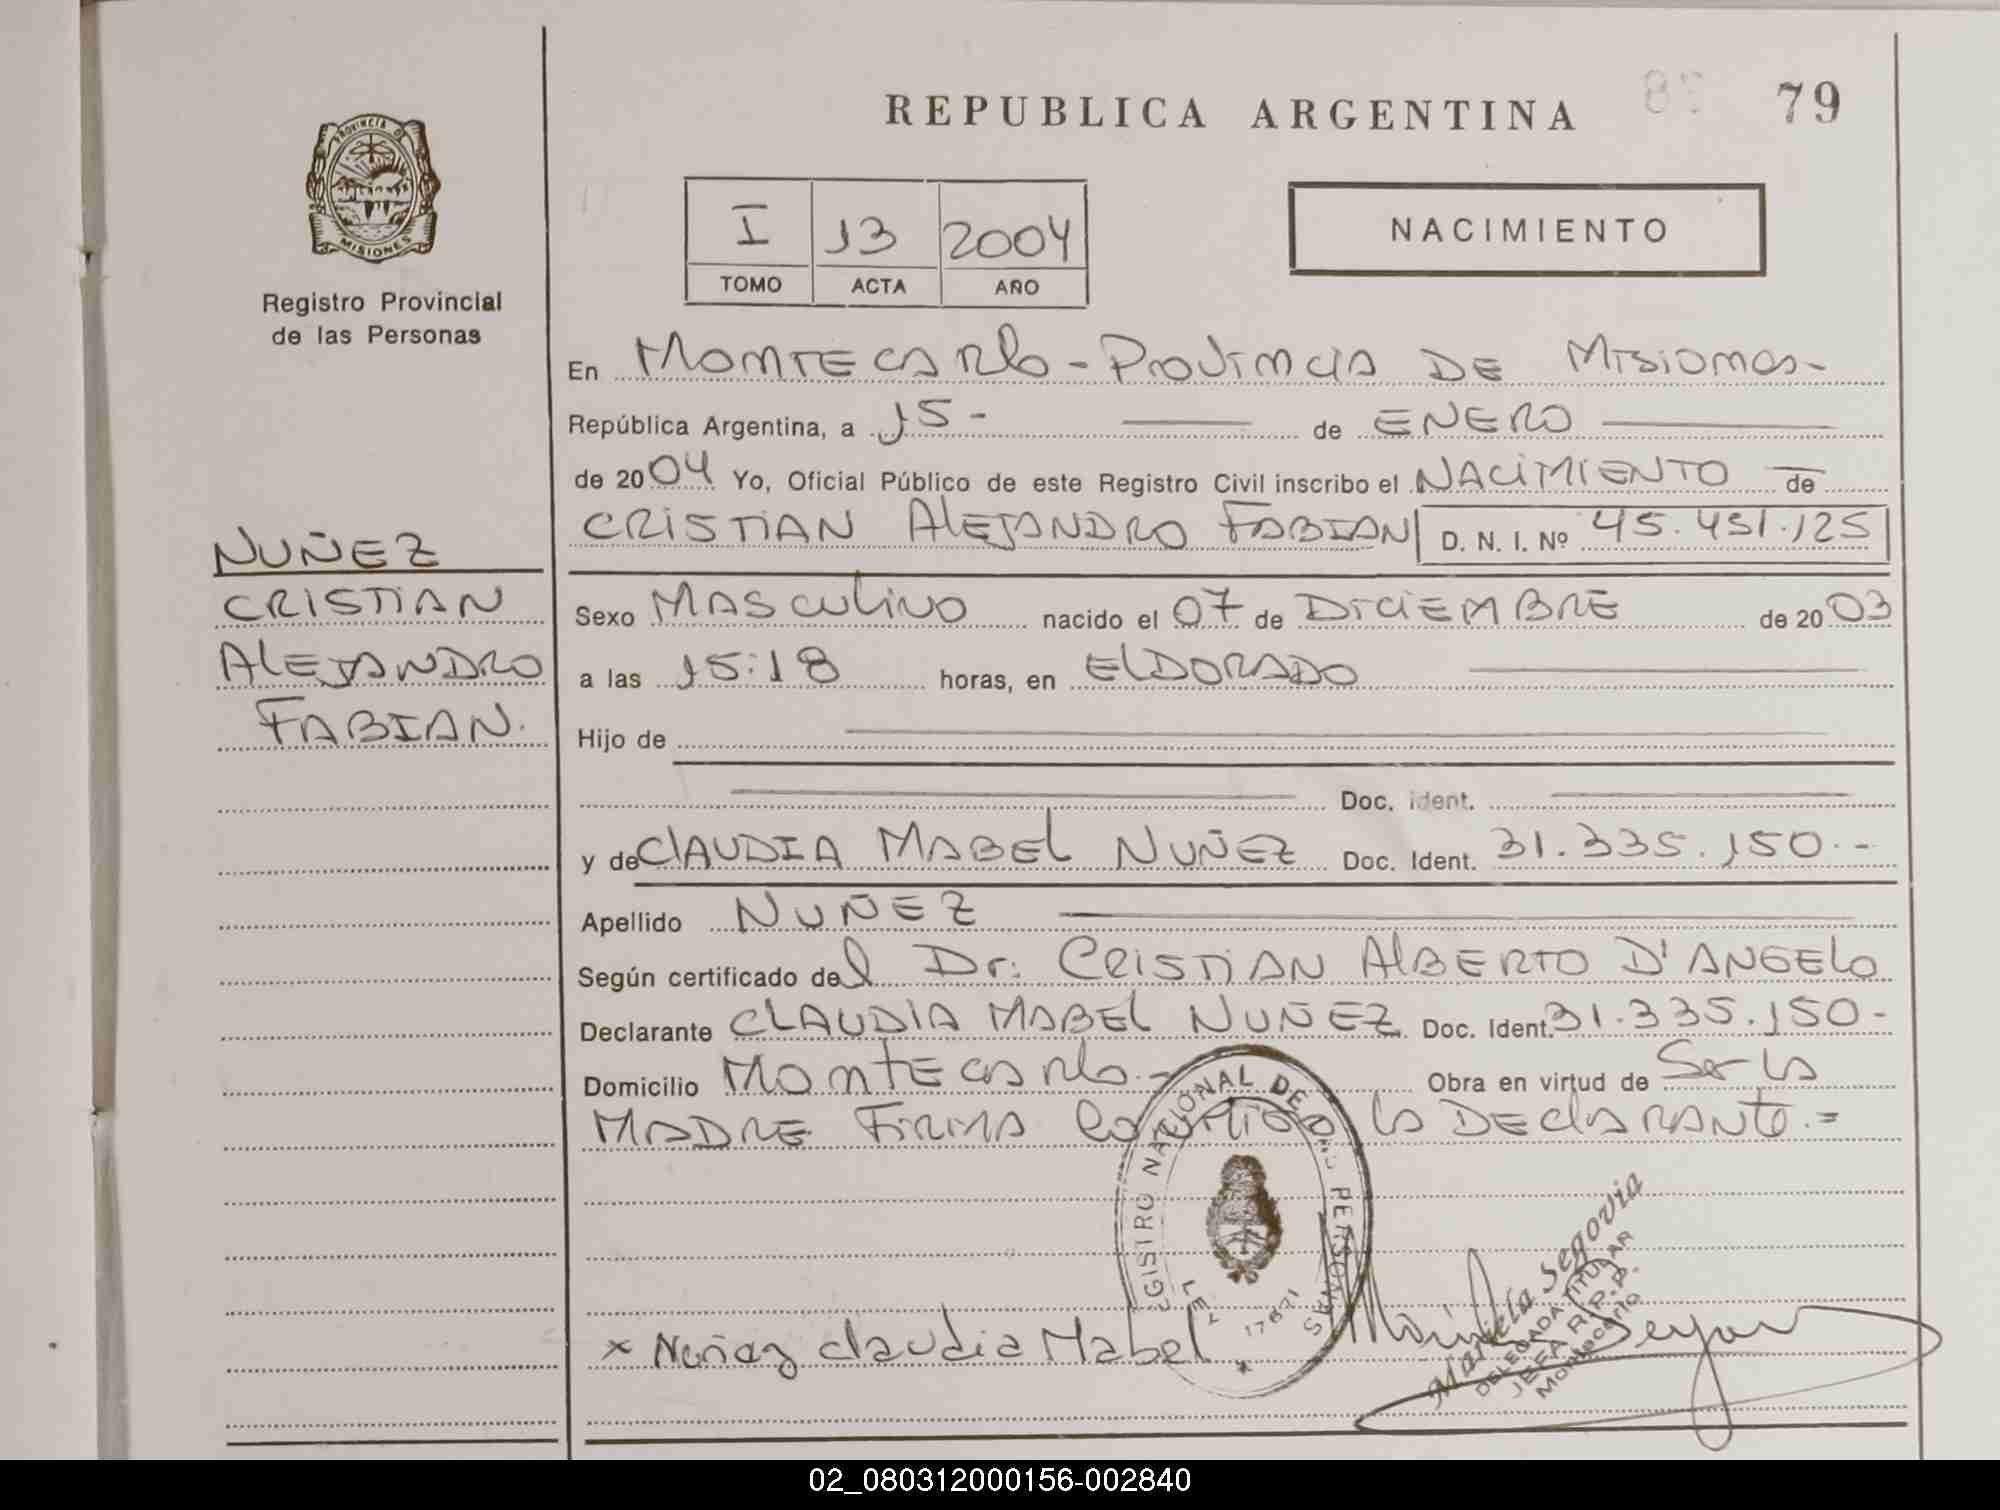 REPUBLICA ARGENTINA
79
PROVINCIA D
MISIONES
Registro Provincial
de las Personas
I 13 2004
TOMO ACTA AÑO
NACIMIENTO
En MONTECARLO - PROVINCIA DE MISIONES-
República Argentina, a 15- de ENERO
de 2004 Yo, Oficial Público de este Registro Civil inscribo el NACIMIENTO de
CRISTIAN ALEJANDRO FABIAN D. N. I. Nº 45.451.125
NUÑEZ
CRISTIAN
ALEJANDRO
FABIAN.
Sexo MASCULINO nacido el 07 de DICIEMBRE de 2003
a las 15:18 horas, en ELDORADO
Hijo de
Doc. ident.
y de CLAUDIA MABEL NUÑEZ Doc. Ident. 31.335.150.-
Apellido NUÑEZ
Según certificado del Dr. CRISTIAN ALBERTO D'ANGELO
Declarante CLAUDIA MABEL NUÑEZ Doc. Ident. 31.335.150-
Domicilio MONTECARLO.- Obra en virtud de Ser LA
MADRE FIRMA CONMIGO LA DECLARANTE.=
REGISTRO NACIONAL DE LAS PERSONAS
LEY 17671
x Nuñez Claudia Mabel
Mariela Segovia
DELEGADA TITULAR
JEFA R.P.P.
Montecarlo
02_080312000156-002840